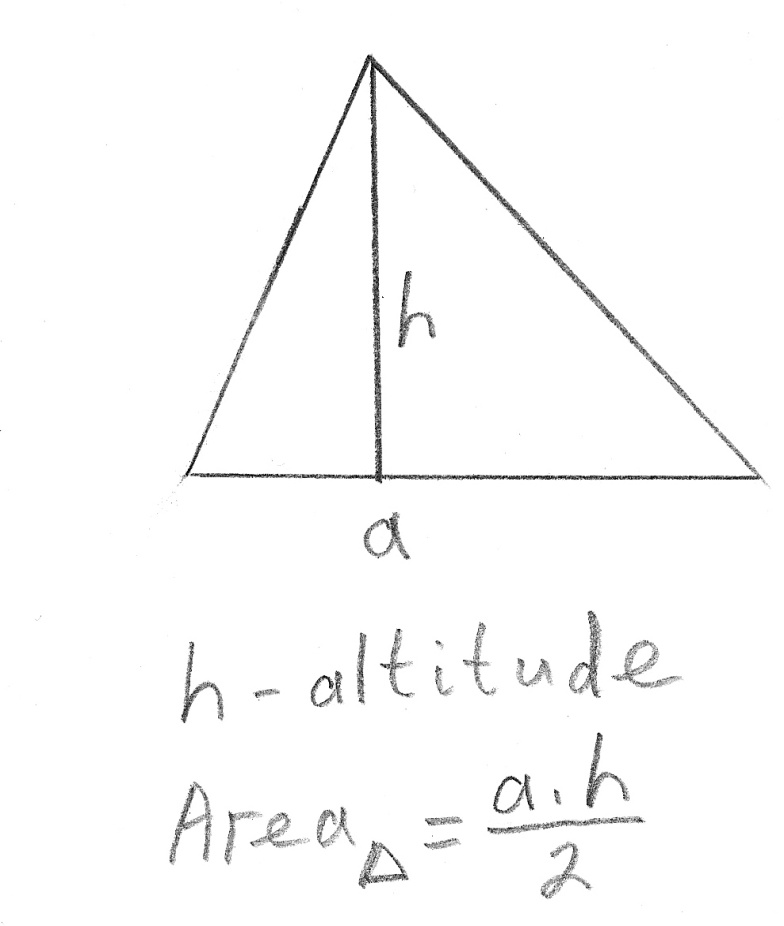 h
a
h - altitude
Area△ = a.h/2